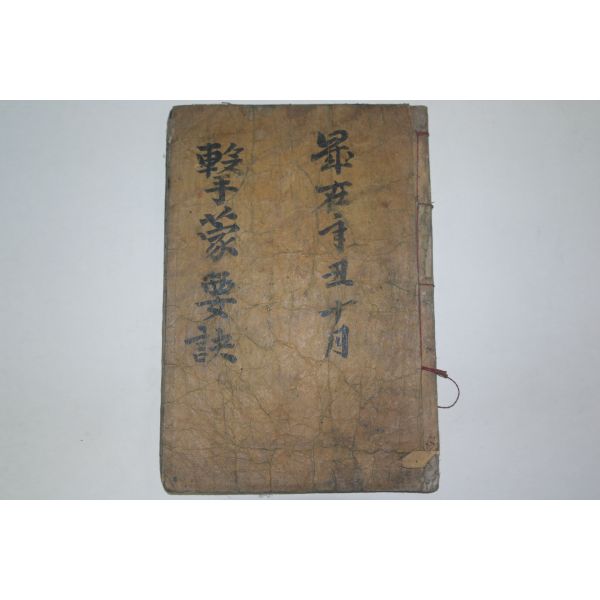 歲在辛丑十月
擊蒙要訣